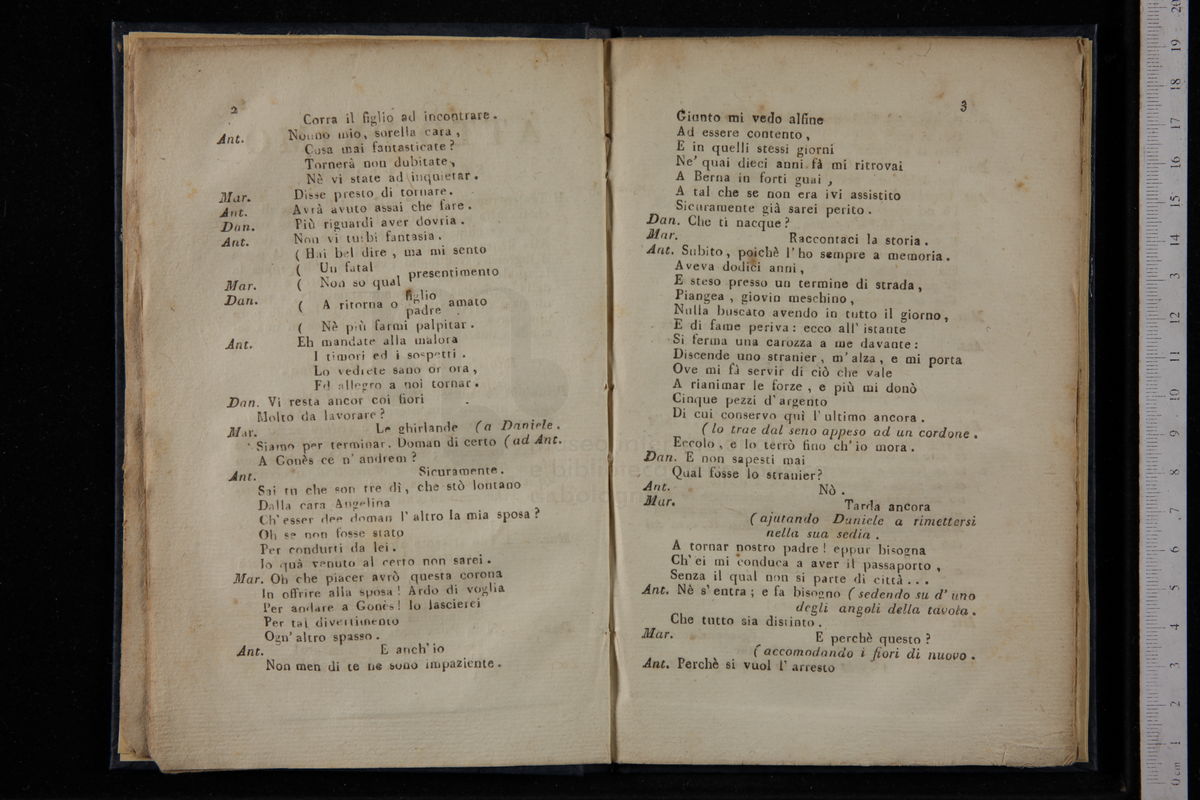 2
Corra il figlio ad incontrare.
Ant. Nonno mio, sorella cara,
Cosa mai fantasticate?
Tornerà non dubitate,
Nè vi state ad inquietar.
Mar. Disse presto di tornare.
Ant. Avrà avuto assai che fare.
Dan. Più riguardi aver dovria.
Ant. Non vi turbi fantasia.
( Hai bel dire, ma mi sento
( Un fatal
Mar. ( Non so qual presentimento
Dan. ( A ritorna o figlio padre amato
( Nè più farmi palpitar.
Ant. Eh mandate alla malora
I timori ed i sospetti.
Lo vedrete sano or ora,
Ed allegro a noi tornar.
Dan. Vi resta ancor coi fiori
Molto da lavorare?
Mar. Le ghirlande (a Daniele.
Siamo per terminar. Doman di certo (ad Ant.
A Gonès ce n'andrem?
Ant. Sicuramente.
Sai tu che son tre dì, che stò lontano
Dalla cara Angelina
Ch'esser dee doman l'altro la mia sposa?
Oh se non fosse stato
Per condurti da lei.
Io quà venuto al certo non sarei.
Mar. Oh che piacer avrò questa corona
In offrire alla sposa! Ardo di voglia
Per andare a Gonès! Io lascierei
Per tal divertimento
Ogn'altro spasso.
Ant. E anch'io
Non men di te ne sono impaziente.
3
Giunto mi vedo alfine
Ad essere contento,
E in quelli stessi giorni
Ne' quai dieci anni fà mi ritrovai
A Berna in forti guai,
A tal che se non era ivi assistito
Sicuramente già sarei perito.
Dan. Che ti nacque?
Mar. Raccontaci la storia.
Ant. Subito, poichè l'ho sempre a memoria.
Aveva dodici anni,
E steso presso un termine di strada,
Piangea, giovin meschino,
Nulla buscato avendo in tutto il giorno,
E di fame periva: ecco all'istante
Si ferma una carozza a me davante:
Discende uno stranier, m'alza, e mi porta
Ove mi fà servir di ciò che vale
A rianimar le forze, e più mi donò
Cinque pezzi d'argento
Di cui conservo quì l'ultimo ancora.
(lo trae dal seno appeso ad un cordone.
Eccolo, e lo terrò fino ch'io mora.
Dan. E non sapesti mai
Qual fosse lo stranier?
Ant. Nò.
Mar. Tarda ancora
(ajutando Daniele a rimettersi
nella sua sedia.
A tornar nostro padre! eppur bisogna
Ch'ei mi conduca a aver il passaporto,
Senza il qual non si parte di città...
Ant. Nè s'entra; e fa bisogno (sedendo su d'uno
degli angoli della tavola.
Che tutto sia distinto.
Mar. E perchè questo?
(accomodando i fiori di nuovo.
Ant. Perchè si vuol l'arresto